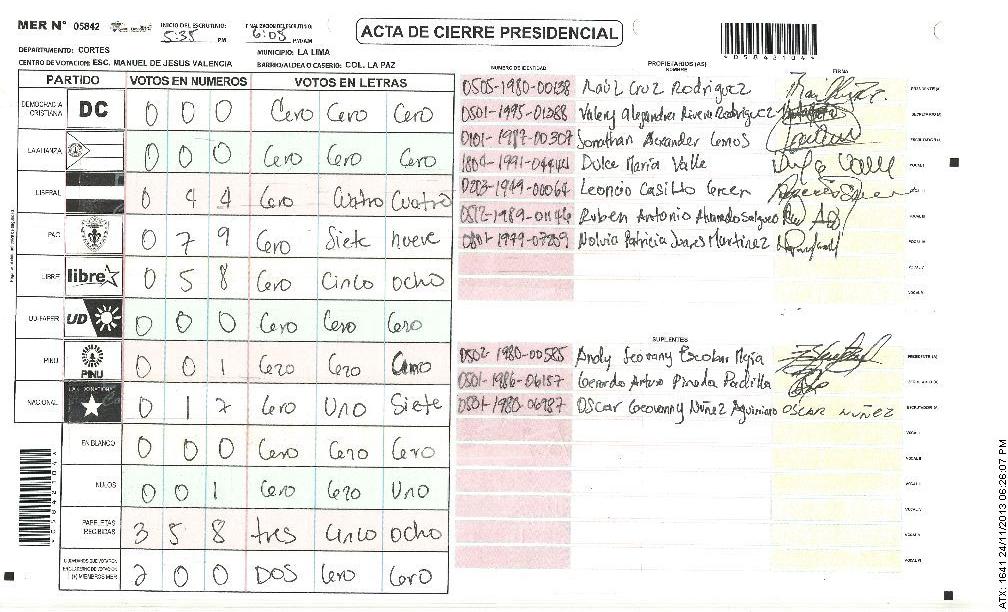 MER N° 05842 INICIO DEL ESCRUTINIO: 5:35 PM FINALIZACION DEL ESCRUTINIO: 6:05 PM/AM
ACTA DE CIERRE PRESIDENCIAL
DEPARTAMENTO: CORTES MUNICIPIO: LA LIMA
CENTRO DE VOTACION: ESC. MANUEL DE JESUS VALENCIA BARRIO/ALDEA O CASERIO: COL. LA PAZ
PARTIDO VOTOS EN NUMEROS VOTOS EN LETRAS
DEMOCRACIA CRISTIANA DC 0 0 0 Cero Cero Cero
LA ALIANZA 0 0 0 Cero Cero Cero
LIBERAL 0 4 4 Cero Cuatro Cuatro
PAC 0 7 9 Cero Siete nueve
LIBRE libre 0 5 8 Cero Cinco ocho
UD-FAPER UD 0 0 0 Cero Cero Cero
PINU PINU 0 0 1 Cero Cero
NACIONAL 0 1 7 Cero Uno Siete
EN BLANCO 0 0 0 Cero Cero Cero
NULOS 0 0 1 Cero Cero Uno
PAPELETAS RECIBIDAS 3 5 8 tres Cinco ocho
(+) MIEMBROS MER 2 0 0 DOS Cero Cero
NUMERO DE IDENTIDAD PROPIETARIOS (AS) NOMBRE FIRMA
0505-1980-00138 Raúl Cruz Rodriguez
0501-1995-01388 Valery Alejandra Rivera Rodriguez
0101-1987-00307 Jonathan Alexander Lemos
Dulce Maria Valle
Leoncio Casillo
Ruben Antonio Alvarado Salguero
Nolvia Patricia Juares Martinez
SUPLENTES
0502-1980-00585 Andy Geovany Escobar Mejia
0501-1986-06157 Gerardo Arturo Pineda Padilla
0501-1980-06987 Oscar Geovanny Nuñez OSCAR NUÑEZ
ATX: 1641 24/11/2013 06:26:07 PM